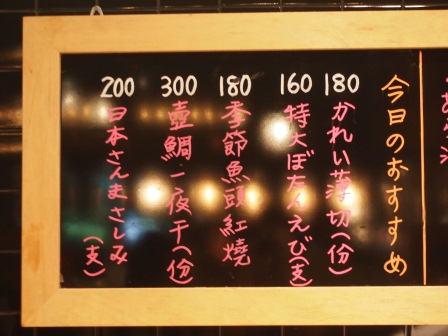 今日のおすすめ
180 かれい薄切(份)
160 特大ぼたんえび(支)
180 季節魚頭紅燒
300 壺鯛一夜干(份)
200 日本さんまさしみ(支)